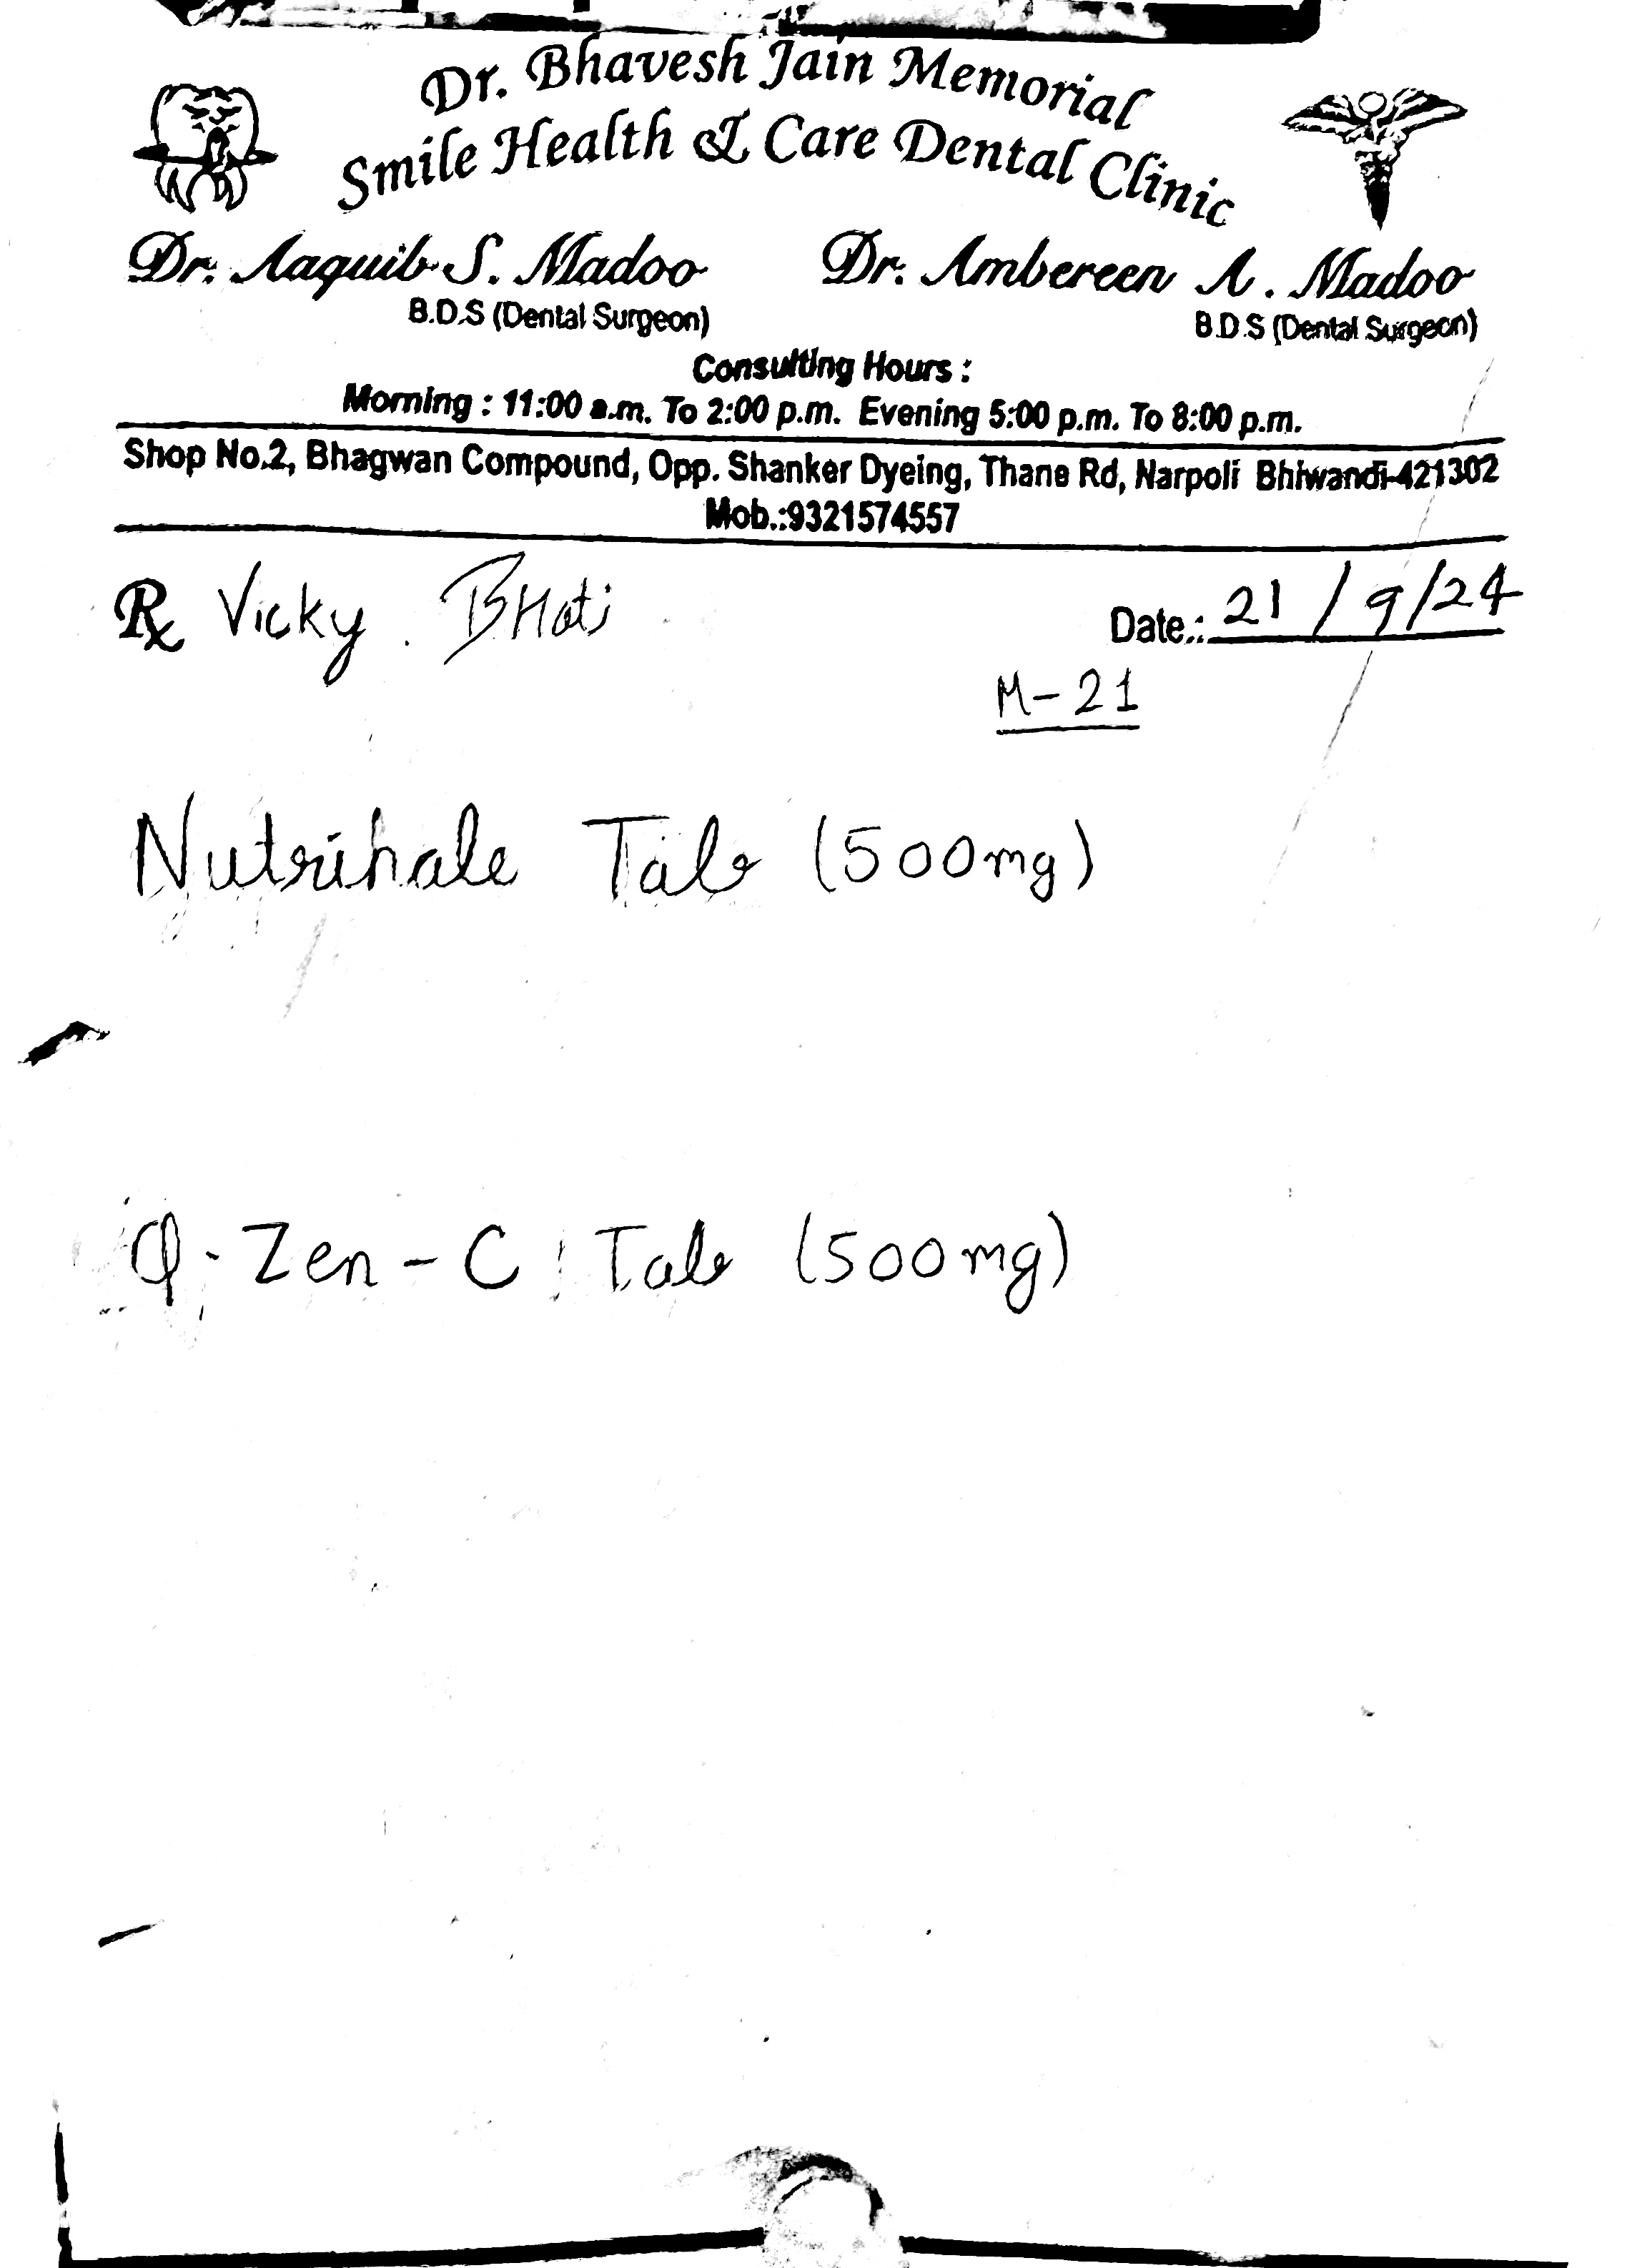 Dr. Bhavesh Jain Memorial
Smile Health & Care Dental Clinic
Dr. Aaquib S. Madoo Dr. Ambereen A. Madoo
B.D.S (Dental Surgeon) B.D.S (Dental Surgeon)
Consulting Hours :
Morning : 11:00 a.m. To 2:00 p.m. Evening 5:00 p.m. To 8:00 p.m.
Shop No.2, Bhagwan Compound, Opp. Shanker Dyeing, Thane Rd, Narpoli Bhiwandi-421302
Mob.:9321574557
Rx Vicky. BHati Date.: 21/9/24
M-21
Nutrihale Tab (500mg)
Q-Zen-C Tab (500mg)